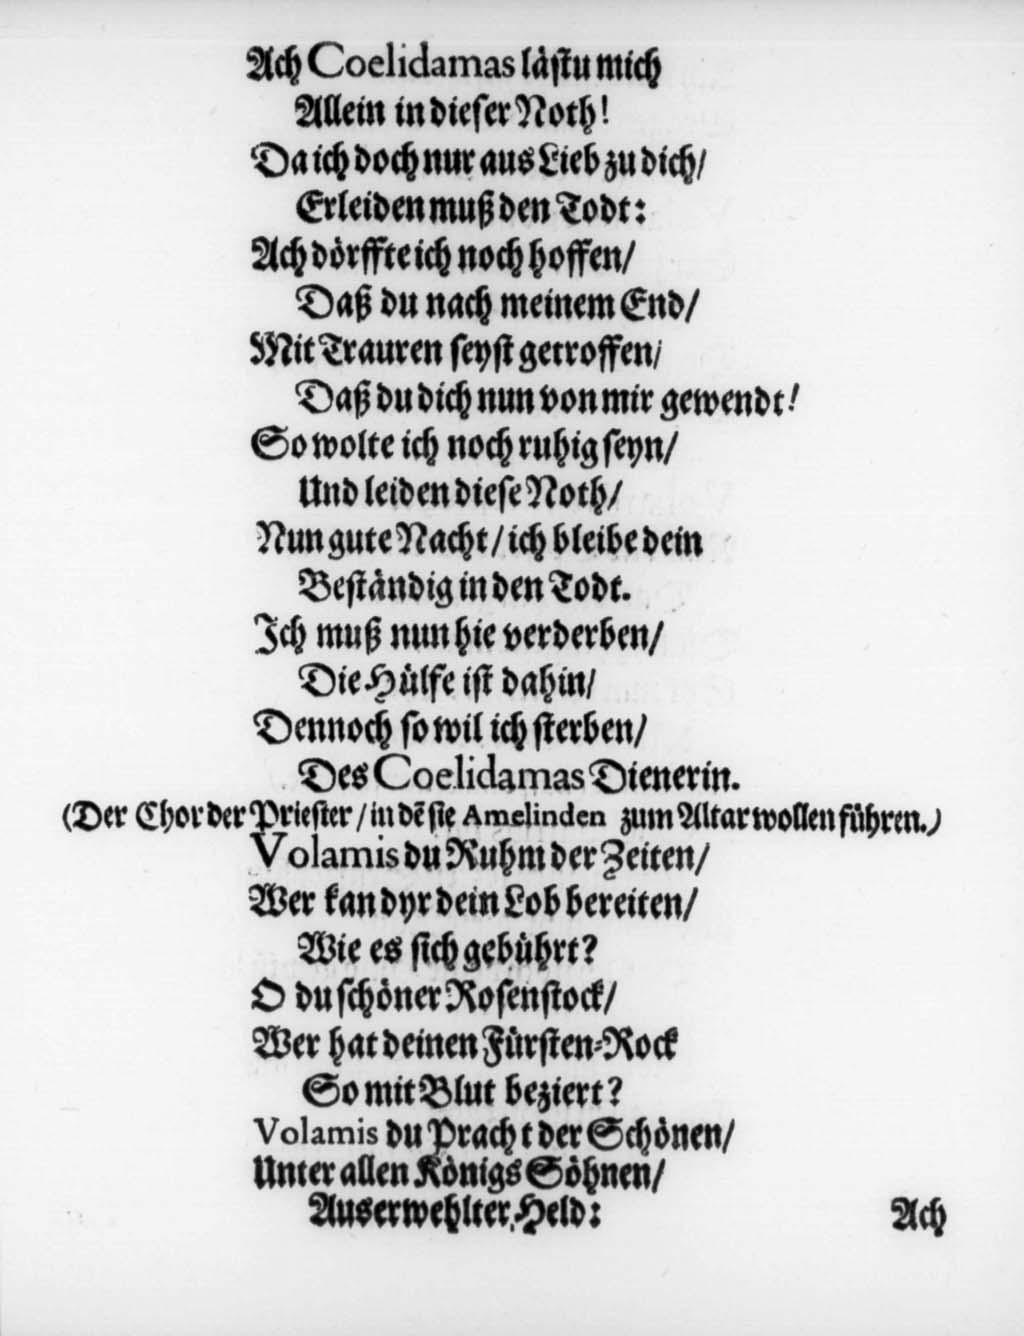 Ach Coelidamas låſtu mich
Allein in dieſer Noth!
Da ich doch nur aus Lieb zu dich/
Erleiden muß den Todt:
Ach dörffte ich noch hoffen/
Daß du nach meinem End/
Mit Trauren ſeyſt getroffen/
Daß du dich nun von mir gewendt!
So wolte ich noch ruhig ſeyn/
Und leiden dieſe Noth/
Nun gute Nacht/ ich bleibe dein
Beſtändig in den Todt.
Ich muß nun hie verderben/
Die Hülfe iſt dahin/
Dennoch ſo wil ich ſterben/
Des Coelidamas Dienerin.
(Der Chor der Prieſter/ in dẽ ſie Amelinden zum Altar wollen führen.)
Volamis du Ruhm der Zeiten/
Wer kan dyr dein Lob bereiten/
Wie es ſich gebührt?
O du ſchöner Roſenſtock/
Wer hat deinen Fürſten-Rock
So mit Blut beziert?
Volamis du Pracht der Schönen/
Unter allen Königs Söhnen/
Auserwehlter Held:
Ach